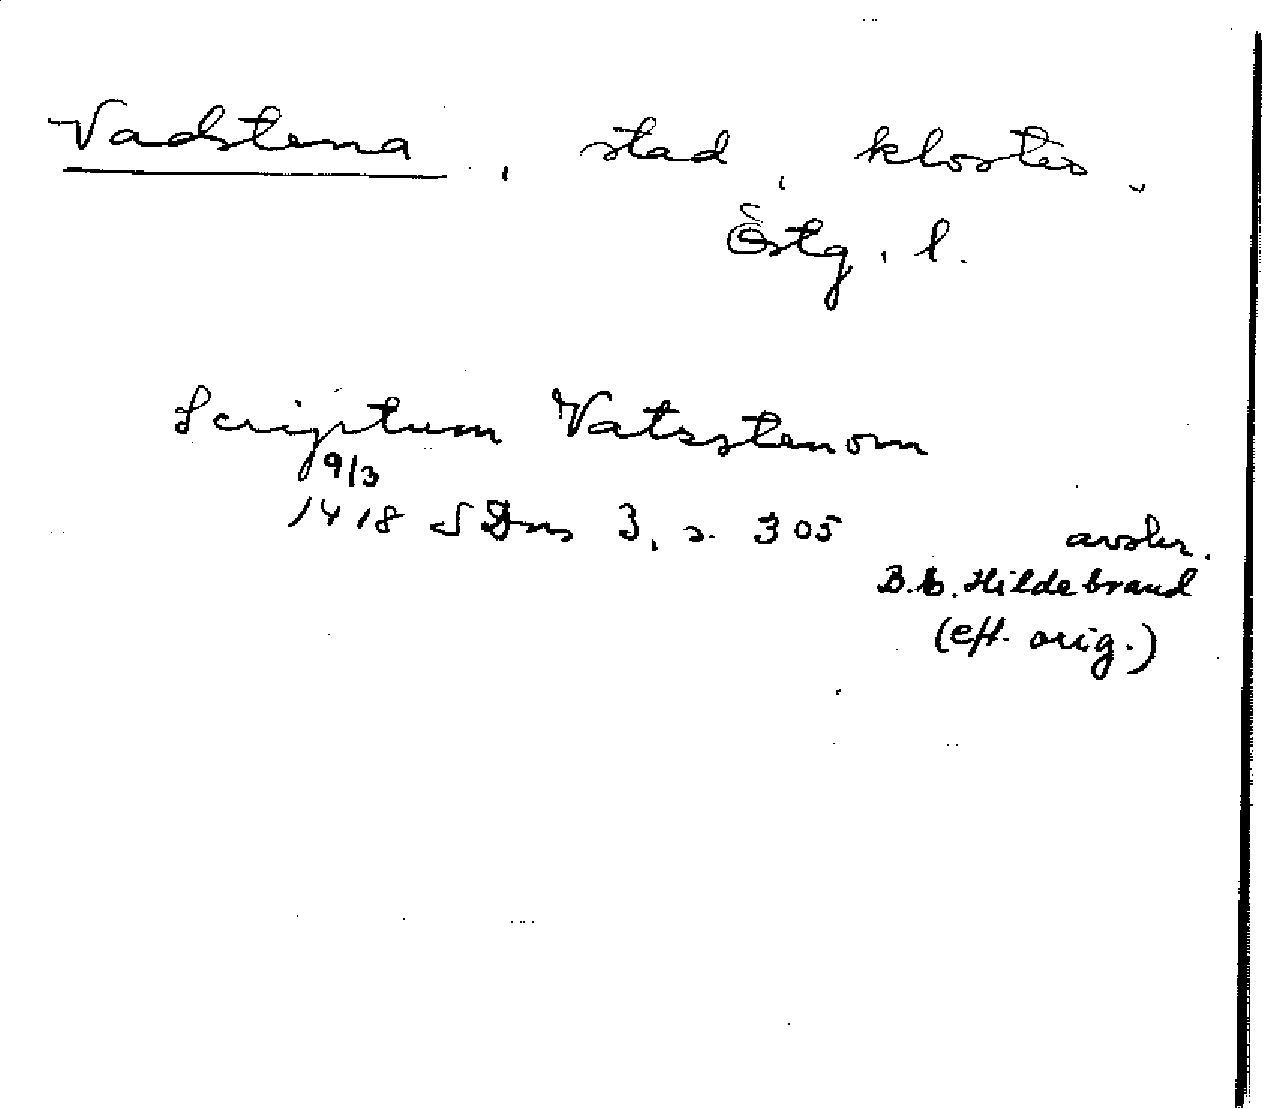 Vadstena, stad, kloster,
Östg. l.
Scriptum Vatsstenom
9/3
1418 SDns 3, s. 305
avskr.
B.E. Hildebrand
(eft. orig.)